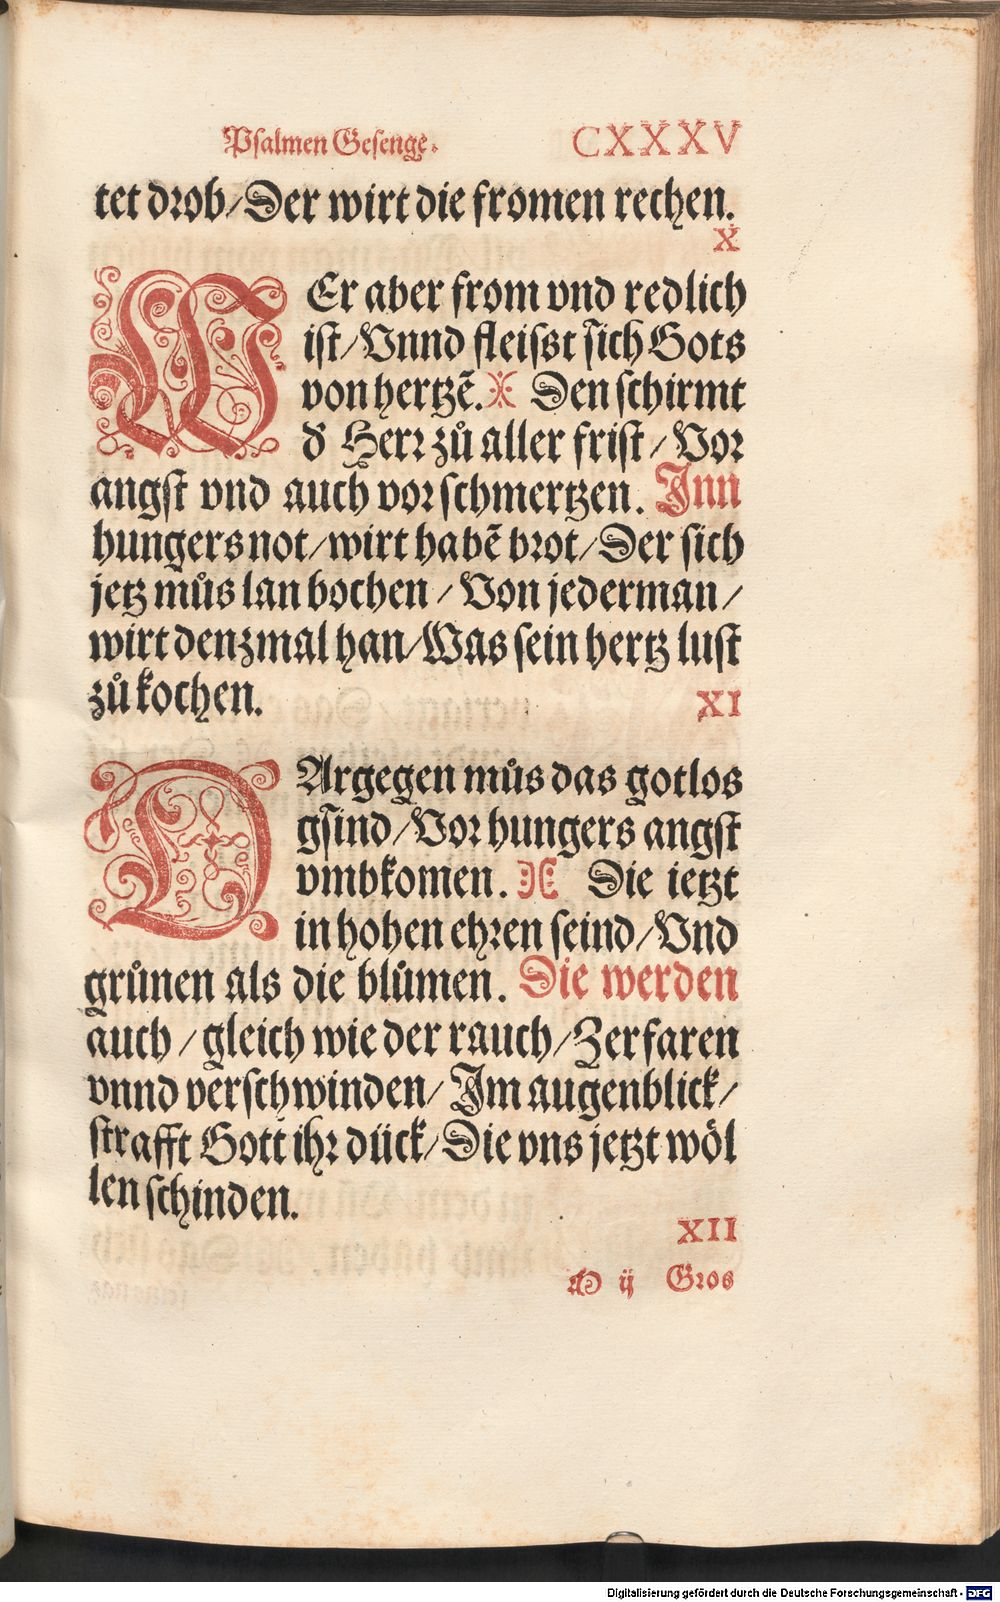 Psalmen Gesenge. CXXXV
tet drob/Der wirt die fromen rechen.
X
WEr aber from vnd redlich
ist/Vnnd fleisst sich Gots
von hertzē. Den schirmt
d̛ Herr zů aller frist/Vor
angst vnd auch vor schmertzen. Inn
hungersnot/wirt habē brot/Der sich
jetz můs lan bochen/Von jederman/
wirt denzmal han/Was sein hertz lust
zů kochen.
XI
DArgegen můs das gotlos
gsind/Vor hungers angst
vmbkomen. Die ietzt
in hohen ehren seind/Vnd
grůnen als die blůmen. Die werden
auch/gleich wie der rauch/Zerfaren
vnnd verschwinden/Im augenblick/
strafft Gott ihr dück/Die vns jetzt wöl
len schinden.
XII
ij Gros
Digitalisierung gefördert durch die Deutsche Forschungsgemeinschaft - DFG